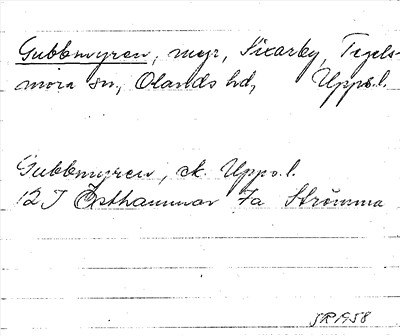 Gubbmyren, myr, Fixarby, Tegels-
mora sn, Olands hd, Upps.l.
Gubbmyren, ek. Upps.l.
12I Östhammar 7a Strömma
JR 1958